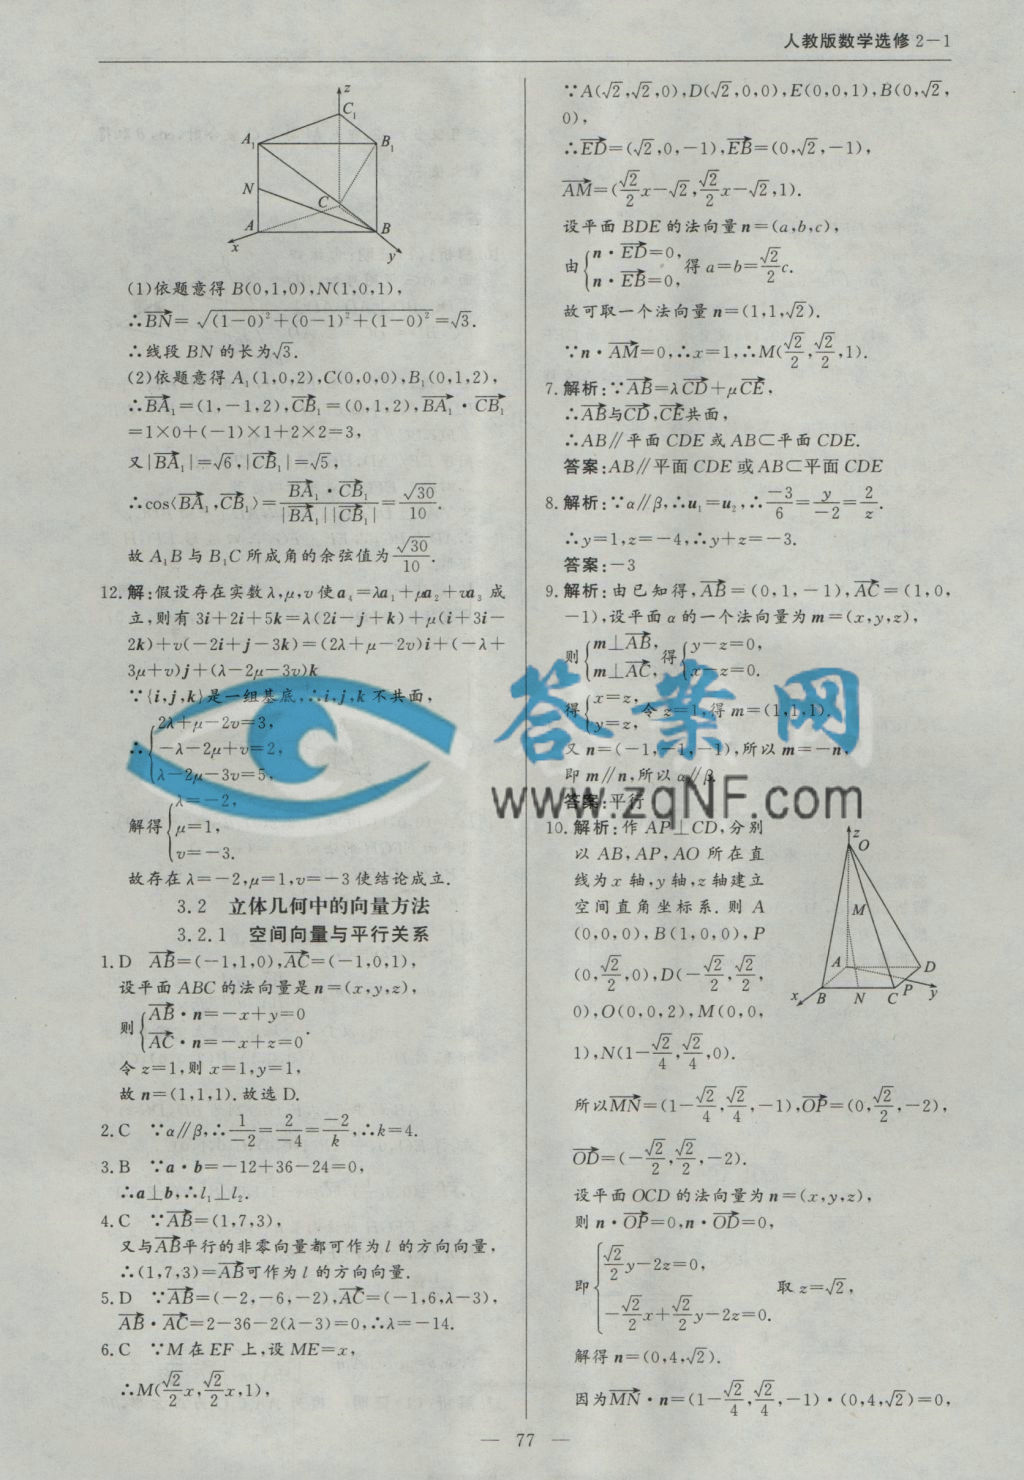 人教版数学选修 2－1
z
C₁
A₁
B₁
N
C
A
B
x
y
(1)依题意得 B(0,1,0),N(1,0,1),
∴BN→=√((1−0)²+(0−1)²+(1−0)²)=√3.
∴线段 BN 的长为√3.
(2)依题意得 A₁(1,0,2),C(0,0,0),B₁(0,1,2),
∴BA₁→=(1,−1,2),CB₁→=(0,1,2),BA₁→·CB₁→
=1×0+(−1)×1+2×2=3,
又|BA₁→|=√6,|CB₁→|=√5,
∴cos⟨BA₁→,CB₁→⟩=(BA₁→·CB₁→)/(|BA₁→||CB₁→|)=√30/10.
故 A₁B 与 B₁C 所成角的余弦值为√30/10.
12.解:假设存在实数 λ,μ,v 使 a₄=λa₁+μa₂+va₃ 成
立,则有 3i+2i+5k=λ(2i−j+k)+μ(i+3i−
2k)+v(−2i+j−3k)=(2λ+μ−2v)i+(−λ+
3μ+v)j+(λ−2μ−3v)k
∵{i,j,k}是一组基底,∴i,j,k 不共面,
∴{2λ+μ−2v=3,
−λ−2μ+v=2,
λ−2μ−3v=5,
解得{λ=−2,
μ=1,
v=−3.
故存在 λ=−2,μ=1,v=−3 使结论成立.
3.2 立体几何中的向量方法
3.2.1 空间向量与平行关系
1.D AB→=(−1,1,0),AC→=(−1,0,1),
设平面 ABC 的法向量是 n=(x,y,z),
则{AB→·n=−x+y=0
AC→·n=−x+z=0.
令 z=1,则 x=1,y=1,
故 n=(1,1,1).故选 D.
2.C ∵α∥β,∴1/−2=2/−4=−2/k,∴k=4.
3.B ∵a·b=−12+36−24=0,
∴a⊥b,∴l₁⊥l₂.
4.C ∵AB→=(1,7,3),
又与AB→平行的非零向量都可作为 l 的方向向量,
∴(1,7,3)=AB→可作为 l 的方向向量.
5.D ∵AB→=(−2,−6,−2),AC→=(−1,6,λ−3),
AB→·AC→=2−36−2(λ−3)=0,∴λ=−14.
6.C ∵M 在 EF 上,设 ME=x,
∴M(√2/2x,√2/2x,1),
∵A(√2,√2,0),D(√2,0,0),E(0,0,1),B(0,√2,
0),
∴ED→=(√2,0,−1),EB→=(0,√2,−1),
AM→=(√2/2x−√2,√2/2x−√2,1).
设平面 BDE 的法向量 n=(a,b,c),
由{n·ED→=0,
n·EB→=0,得 a=b=√2/2c.
故可取一个法向量 n=(1,1,√2).
∵n·AM→=0,∴x=1,∴M(√2/2,√2/2,1).
7.解析:∵AB→=λCD→+μCE→,
∴AB→与CD→,CE→共面,
∴AB∥平面 CDE 或 AB⊂平面 CDE.
答案:AB∥平面 CDE 或 AB⊂平面 CDE
8.解析:∵α∥β,∴u₁=u₂,∴−3/6=y/−2=2/z.
∴y=1,z=−4,∴y+z=−3.
答案:−3
9.解析:由已知得,AB→=(0,1,−1),AC→=(1,0,
−1),设平面 α 的一个法向量为 m=(x,y,z),
则{m⊥AB→,
m⊥AC→,得{y−z=0,
x−z=0.
得{x=z,
y=z,令 z=1,得 m=(1,1,1).
又 n=(−1,−1,−1),所以 m=−n,
即 m∥n,所以 α∥β.
答案:平行
10.解析:作 AP⊥CD,分别
以 AB,AP,AO 所在直
线为 x 轴,y 轴,z 轴建立
空间直角坐标系.则 A
(0,0,0),B(1,0,0),P
(0,√2/2,0),D(−√2/2,√2/2,
0),O(0,0,2),M(0,0,
1),N(1−√2/4,√2/4,0).
z
O
M
A
D
x
B
N
C
P
y
所以MN→=(1−√2/4,√2/4,−1),OP→=(0,√2/2,−2),
OD→=(−√2/2,√2/2,−2).
设平面 OCD 的法向量为 n=(x,y,z),
则 n·OP→=0,n·OD→=0,
即{√2/2y−2z=0,
−√2/2x+√2/2y−2z=0. 取 z=√2,
解得 n=(0,4,√2).
因为MN→·n=(1−√2/4,√2/4,−1)·(0,4,√2)=0,
答案网
www.zqNF.com
— 77 —